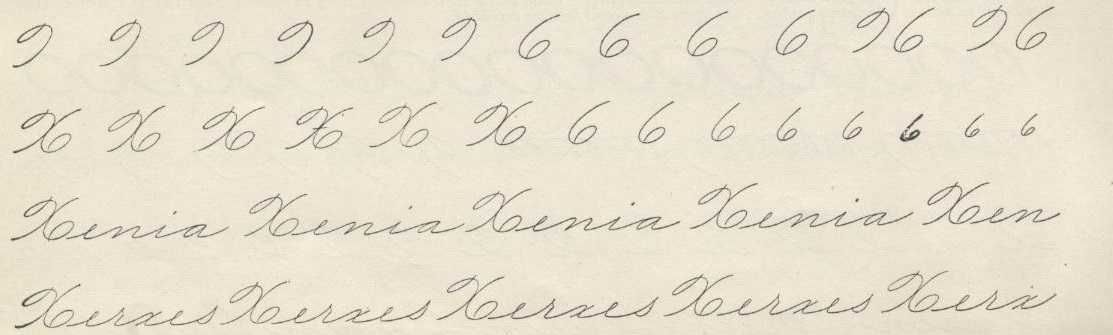 9 9 9 9 9 9 6 6 6 6 96 96
X X X X X X 6 6 6 6 6 6 6 6
Xenia Xenia Xenia Xenia Xen
Xerxes Xerxes Xerxes Xerxes Xerx